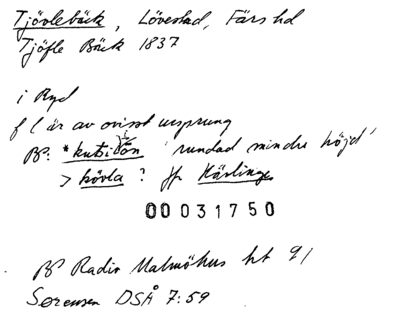 Tjövlebäck, Lövestad, Färs hd
Tjöfle Bäck 1837
i Ryd
f l är av ovisst ursprung
BP: *kubilōn 'rundad mindre höjd'
> kövla? Jfr Kävlinge
00031750
BP Radio Malmöhus ht 91
Sørensen DSÅ 7:59